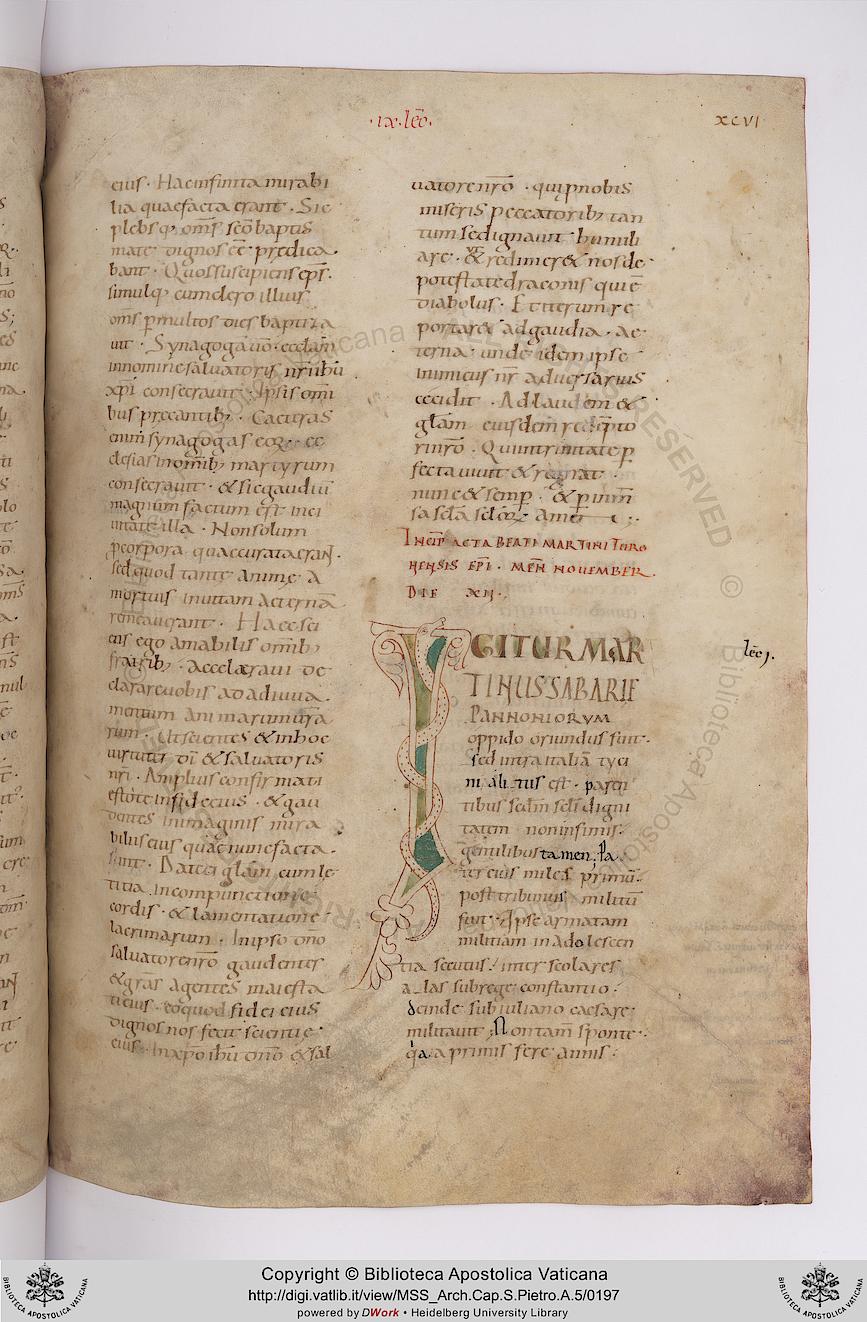 ·ix·lec̄·
xcvi
eius · Haec infinita mirabi
lia quae facta erant · Sic
plebsq; om̄s sc̄o baptis
mate dignos ēē predica·
bant · Quos suscipiens ep̄s ·
simulq; cum clero illius
om̄s p multos dies baptiza
uit · Synagogā uō · eccl̄am
in nomine salvatoris nr̄i ih̄u
xp̄i consecrauit · Ipsis omī
bus precantib; · Caeteras
enim synagogas eoꝝ · ec
clesias in om̄ib; martyrum
consecrauit · & sic gaudiū
magnum factum est in ci
uitate illa · Non solum
p corpora quae curata eran ·
sed quod tante anime a
mortuis in uitam aeternā
remeauerant · Haec sci
ens ego amabilis om̄ib;
fratrib; · acceleraui de
clarare uobis ad adiuua
mentum animarum urā
rum · Ut scientes & in hoc
uirtutes dī & saluatoris
nr̄i · Amplius confirmati
estote in fide eius · & gau
dentes in imaginis mira
bilius eius quae nunc facta
sunt · Date ei glam̄ cum le
titia in compunctione
cordis · & lamentatione
lacrimarum · In ipso dn̄o
saluatore nr̄o gaudentes
& grās agentes maiesta
ti eius · eo quod fidei eius
dignos nos fecit scientie
eius · In xp̄o ihū dn̄o & sal
uatore nr̄o · qui p nobis
miseris peccatorib; tan
tum se dignauit humili
are · & redimer& nos de
potestate draconis qui ē
diabolus · Et iterum re
portar& ad gaudia · ae
terna · unde idem ipse
inimicus nr̄ aduersarius
cecidit · Ad laudem &
glam̄ eiusdem redempto
ris nr̄o · Qui in trinitate p
fecta uiuit & regnat ·
nunc & semp · & p inim̄
sa scl̄a scl̄oꝝ · amen ·
Incip̄ acta beati martini turo
nensis ep̄i · men̄ november
die xii ·
IGITUR MAR
TINUS SABARIE
PANNONIORUM
oppido oriundus fuit ·
sed intra italiā tyci
ni alitus est · paren
tibus scdm̄ scl̄i digni
tatem non infimis ·
gentilibus tamen; Pa
ter eius miles primū ·
post tribunus militū
fuit · Ipse armatam
militiam in adolescen
tia secutus · inter scolares
alas sub rege constantio ·
deinde sub iuliano caesare ·
militauit; Non tam̄ sponte ·
q̓a a primis fere annis ·
lec̄ j.
Copyright © Biblioteca Apostolica Vaticana
http://digi.vatlib.it/view/MSS_Arch.Cap.S.Pietro.A.5/0197
powered by DWork • Heidelberg University Library